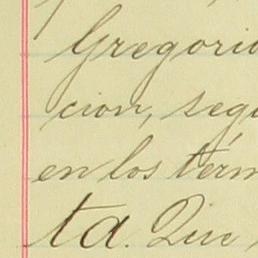 Gregorio
cion, segu
en los térm
ta. Que